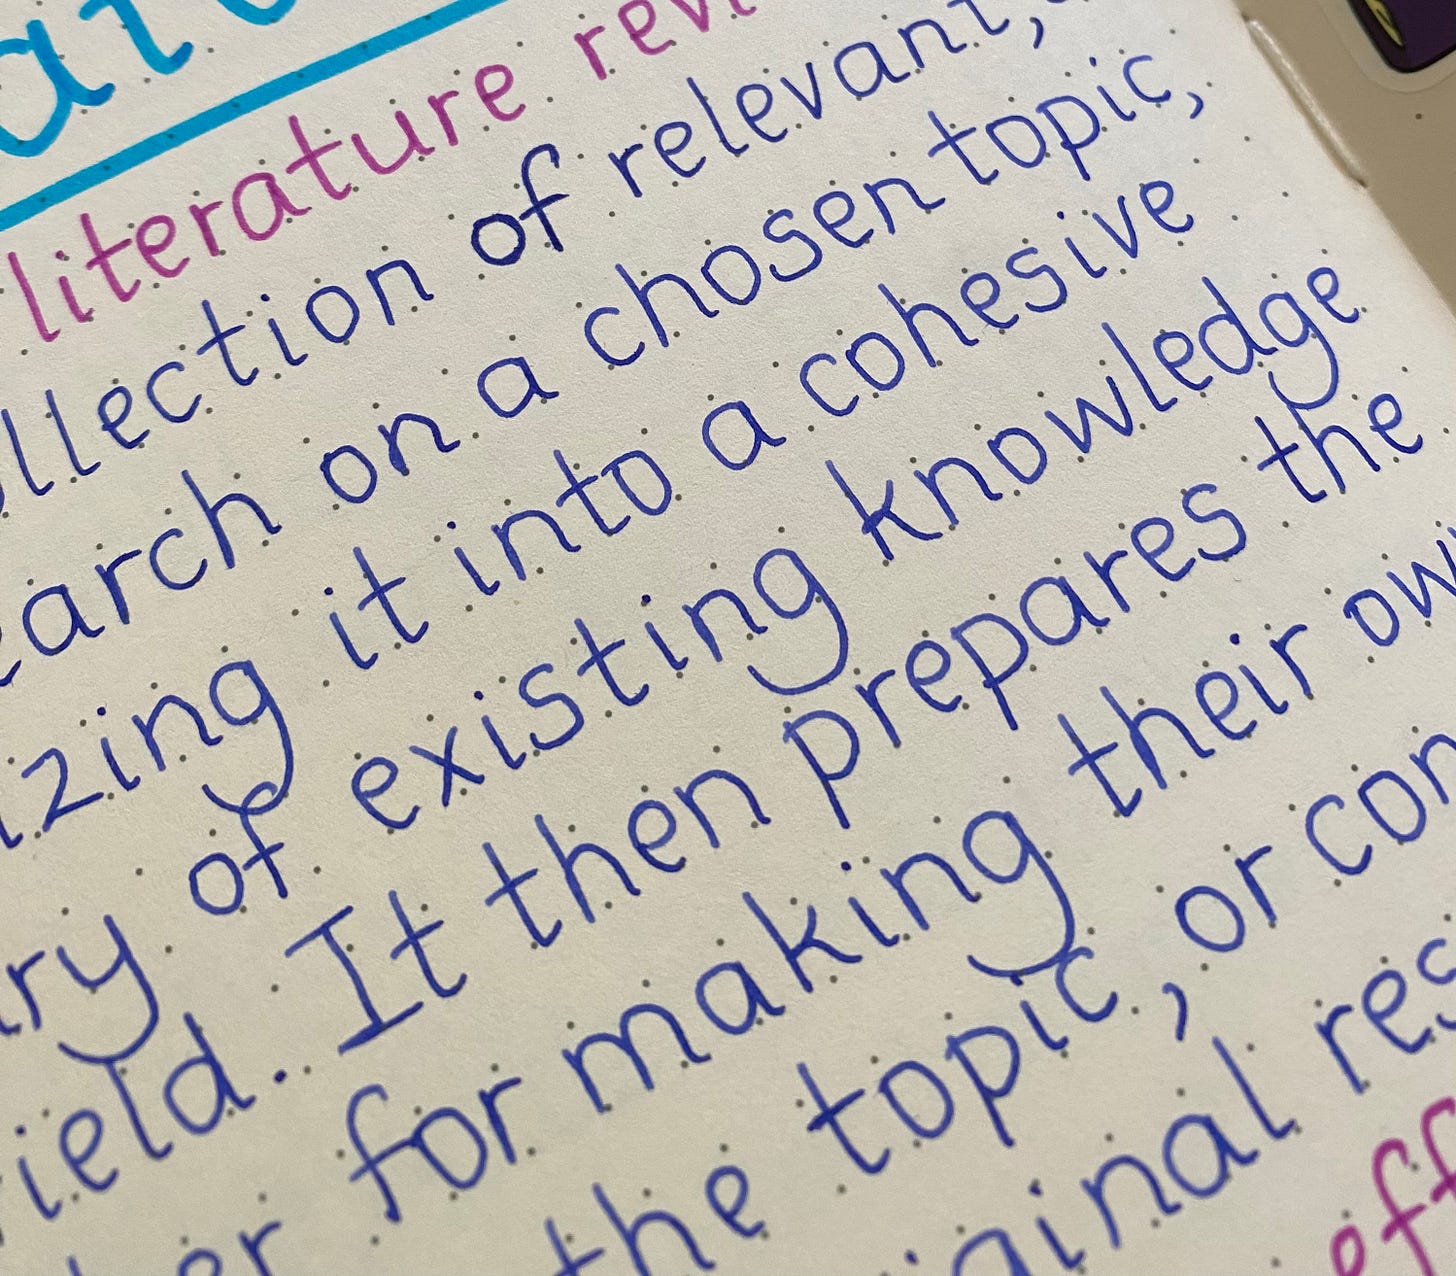 literature rev
llection of relevant,
earch on a chosen topic,
zing it into a cohesive
ry of existing knowledge
ield. It then prepares the
er for making their own
the topic, or con
ginal res
eff